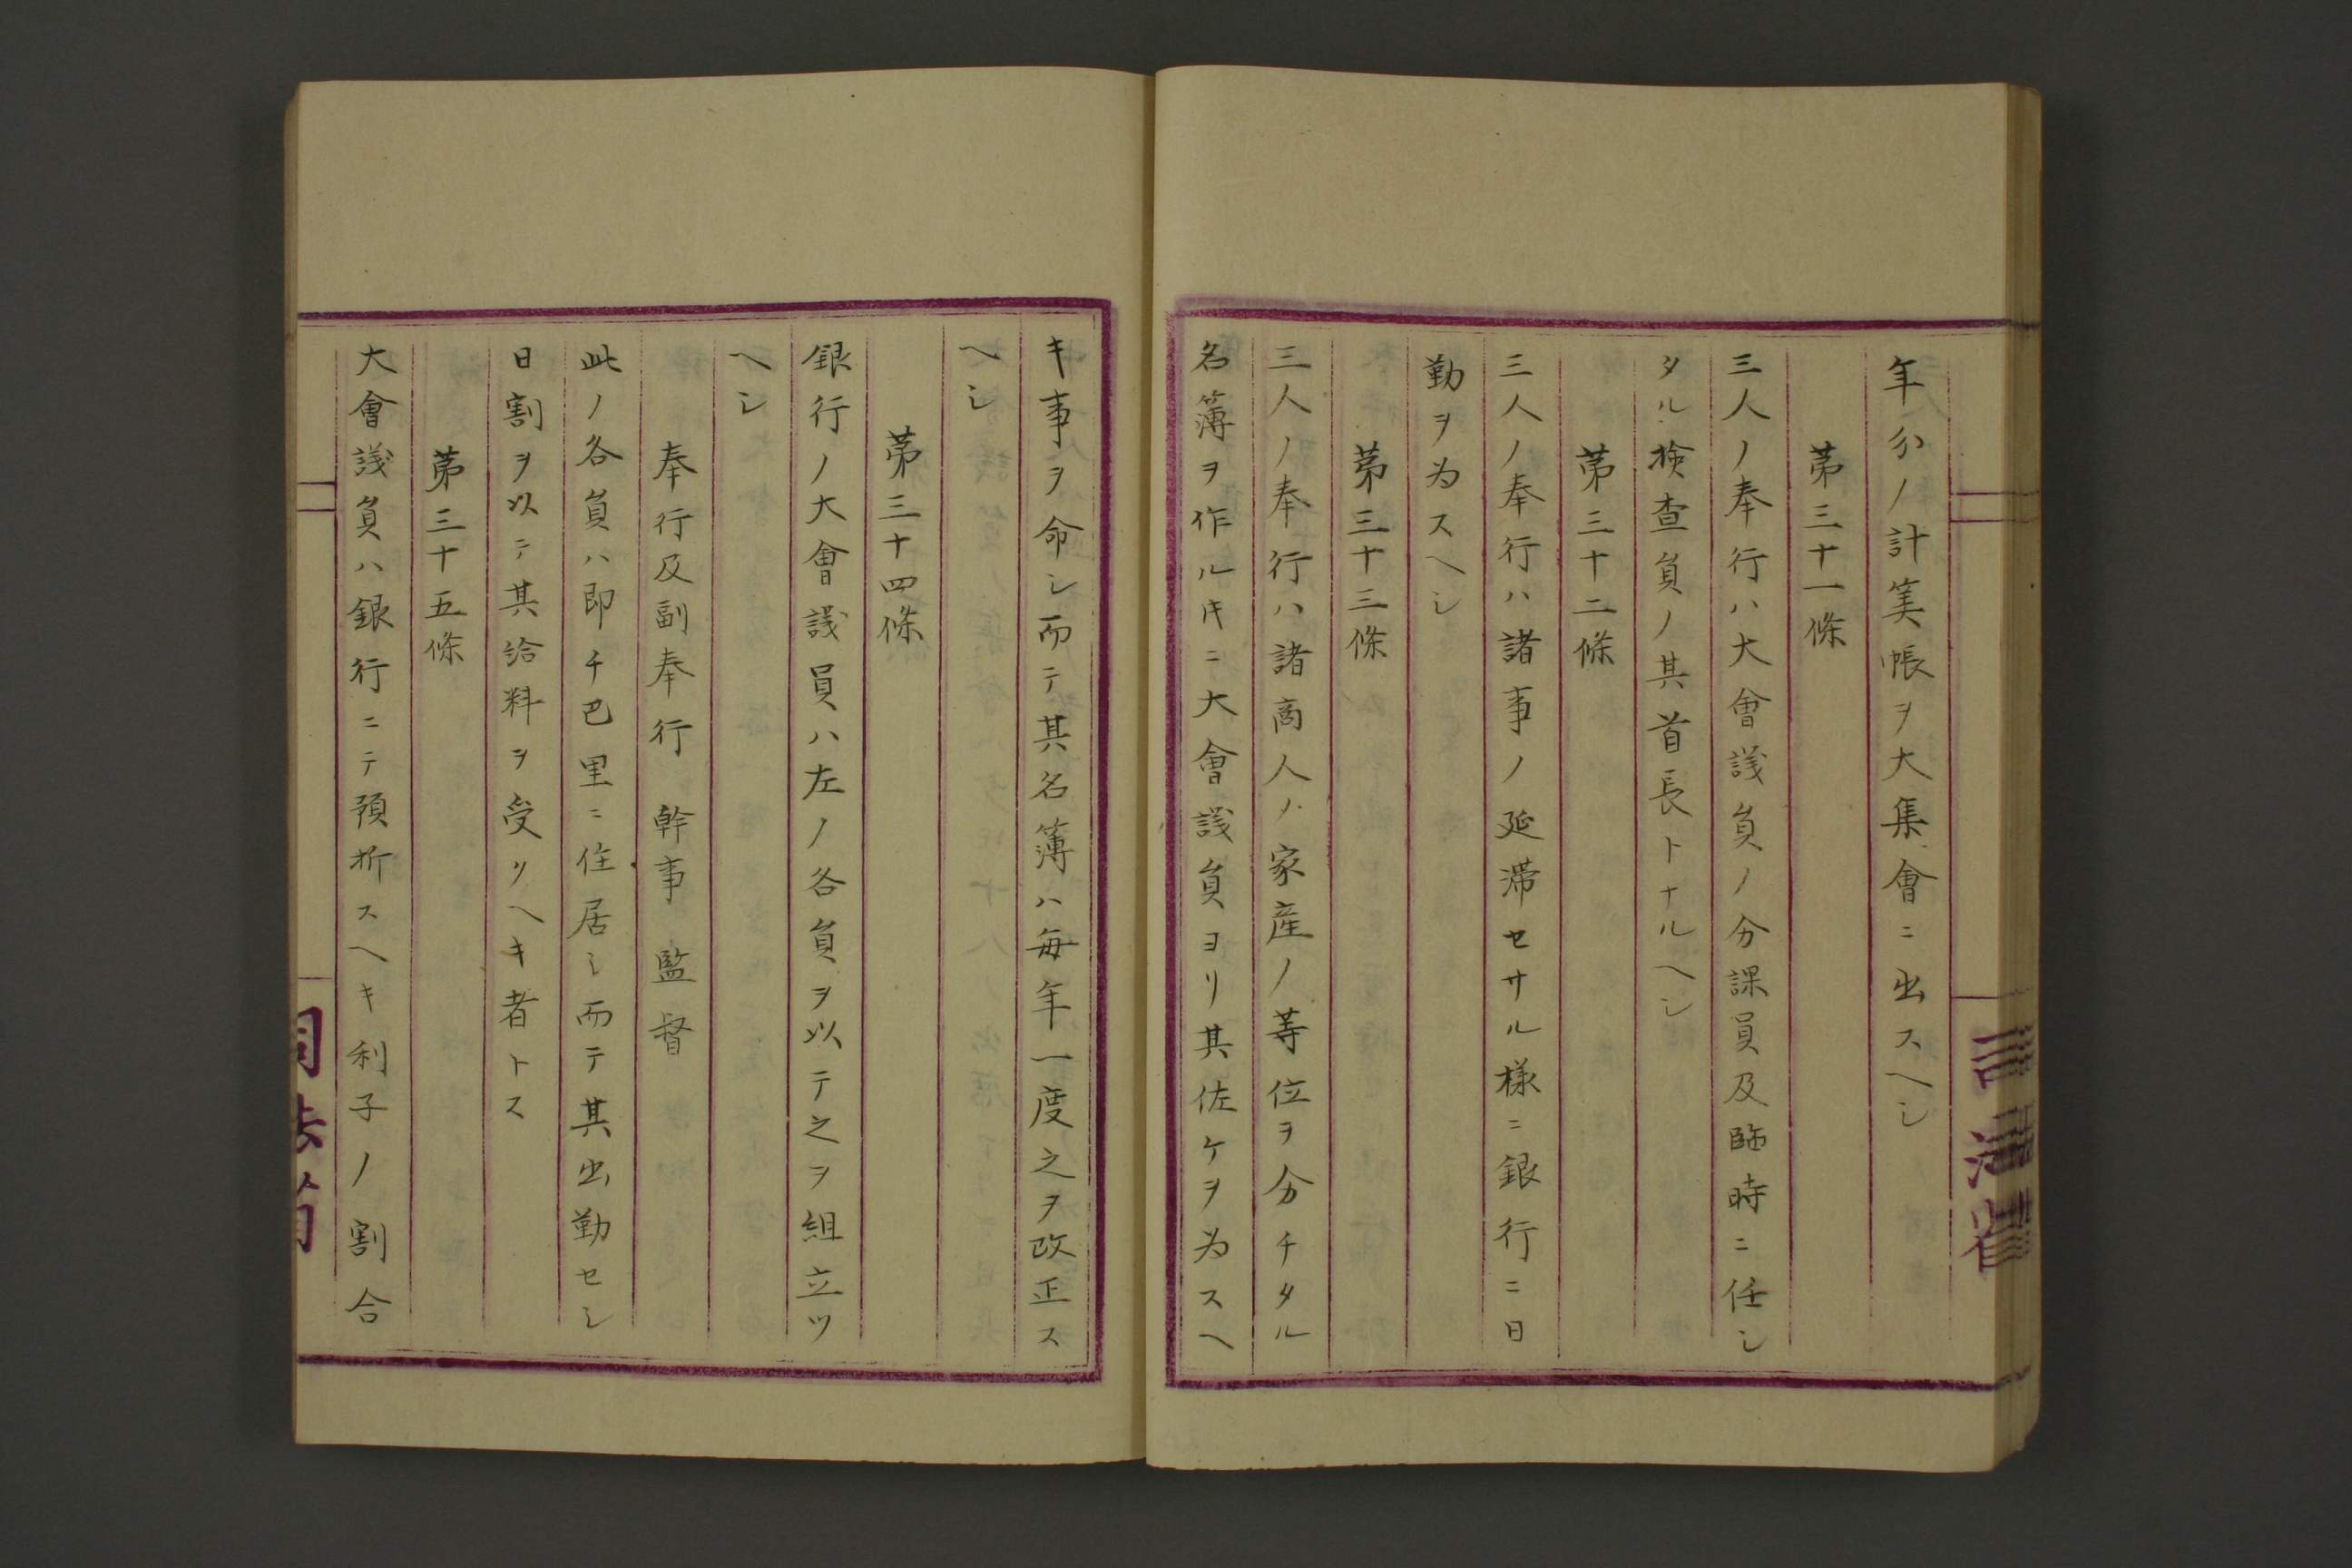 年分ノ計筭帳ヲ大集會ニ出スヘシ
第三十一條
三人ノ奉行ハ大會議員ノ分課員及臨時ニ任シ
タル檢査員ノ其首長トナルヘシ
第三十二條
三人ノ奉行ハ諸事ノ延滯セサル樣ニ銀行ニ日
勤ヲ為スヘシ
第三十三條
三人ノ奉行ハ諸商人ノ家産ノ等位ヲ分チタル
名簿ヲ作ルキニ大會議員ヨリ其佐ケヲ為スヘ
キ事ヲ命シ而テ其名簿ハ毎年一度之ヲ改正ス
ヘシ
第三十四條
銀行ノ大會議員ハ左ノ各員ヲ以テ之ヲ組立ツ
ヘシ
奉行及副奉行 幹事 監督
此ノ各員ハ即チ巴里ニ住居シ而テ其出勤セシ
日割ヲ以テ其給料ヲ受クヘキ者トス
第三十五條
大會議員ハ銀行ニテ預折スヘキ利子ノ割合
司法省